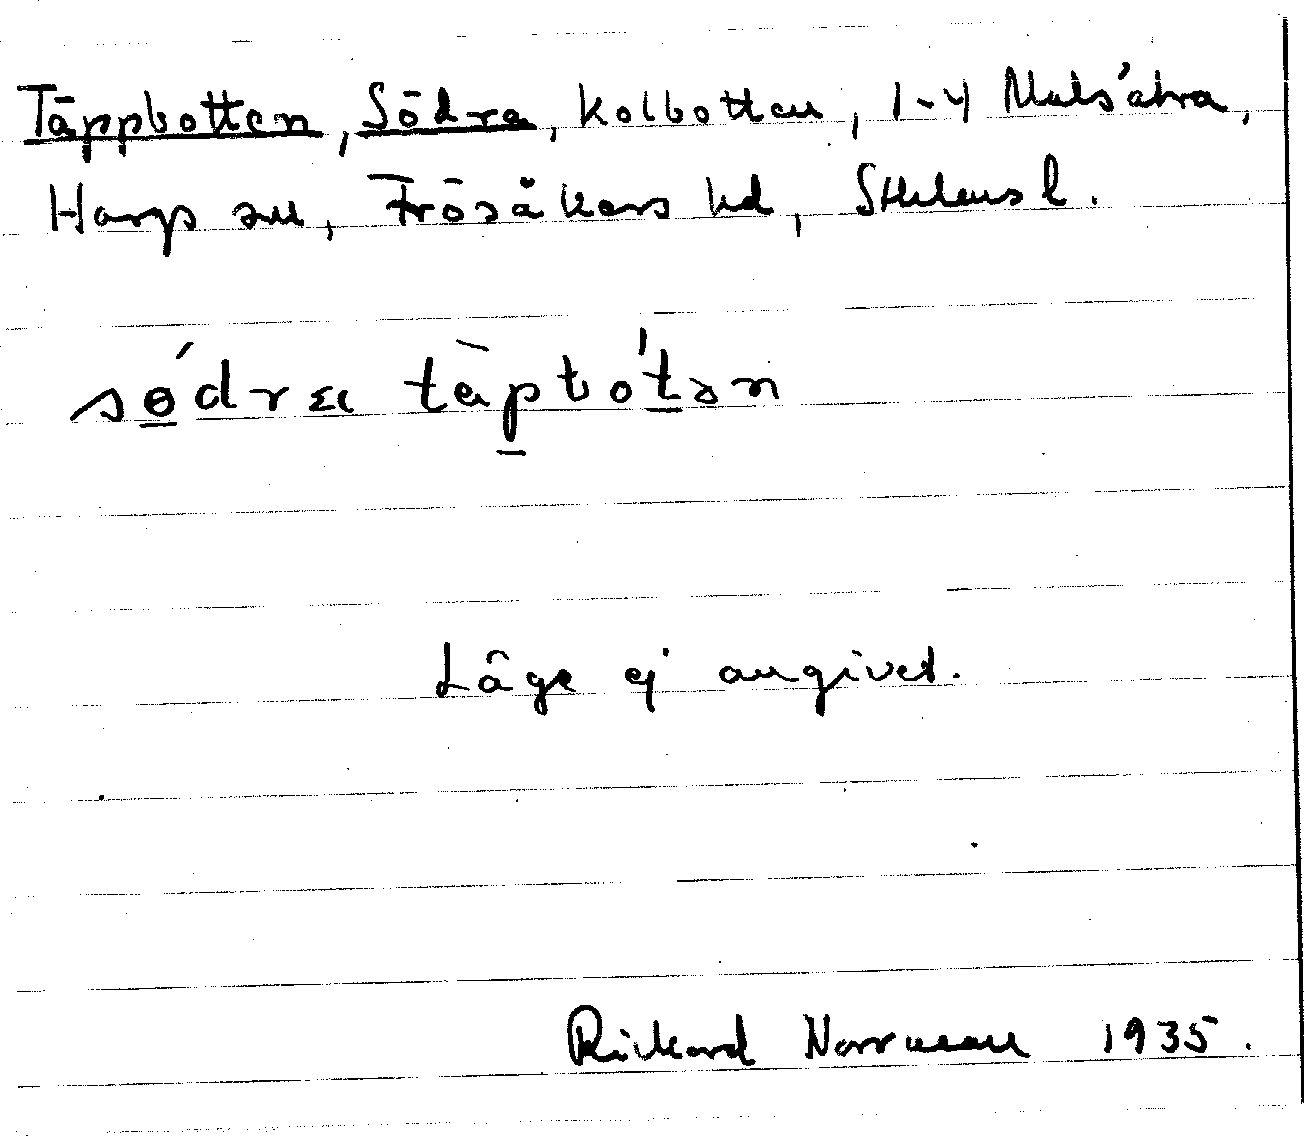 Täppbotten, Södra, kolbotten, 1-4 Malsätra,
Hargs sn, Frösåkers hd, Sthlms l.
södra täpbotən
Läge ej angivet.
Rickard Norrman 1935.